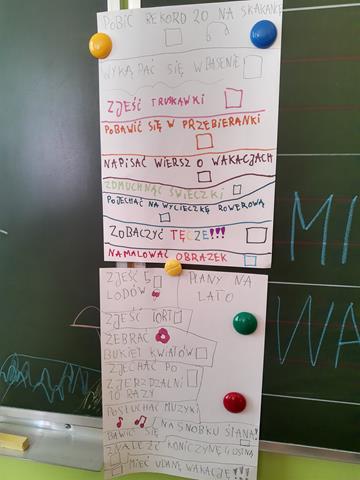 POBIĆ REKORD 20 NA SKAKANCE
WYKĄPAĆ SIĘ W BASENIE
ZJEŚĆ TRUSKAWKI
POBAWIĆ SIĘ W PRZEBIERANKI
NAPISAĆ WIERSZ O WAKACJACH
ZDMUCHNĄĆ ŚWIECZKI
POJECHAĆ NA WYCIECZKĘ ROWEROWĄ
ZOBACZYĆ TĘCZE!!!
NAMALOWAĆ OBRAZEK
ZJEŚĆ 5
LODÓW
PLANY NA
LATO
ZJEŚĆ TORT
ZEBRAĆ
BUKIET KWIATÓW
ZJECHAĆ PO
ZJEŻDZALNI
10 RAZY
POSŁUCHAĆ MUZYKI
BAWIĆ SIĘ NA SNOBKU SIANA!
ZNALEŹĆ KONICZYNĘ
MIEĆ UDANE WAKACJE!!!
MI
WA